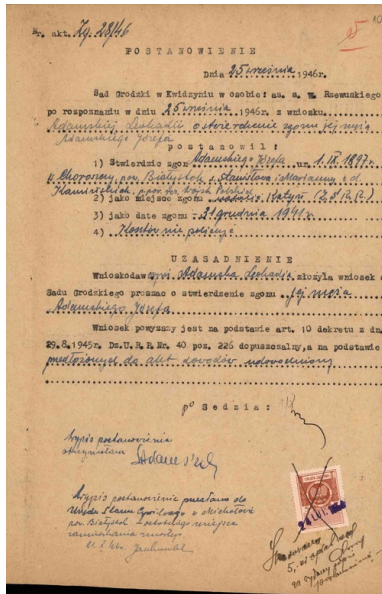 Nr. akt. Zg. 28/46
POSTANOWIENIE
Dnia 25 września 1946r.
Sąd Grodzki w Kwidzyniu w osobie: as. s. w. Rzewuskiego
po rozpoznaniu w dniu 25 września 1946r. z wniosku
Adamskiej Leokadii o stwierdzenie zgonu jej męża
Adamskiego Józefa
postanowił:
1) Stwierdzić zgon Adamskiego Józefa ur. 1.IX.1897r.
w Choroszczy, pow. Białystok s. Stanisława i Marianny z d.
Kamińskich,
2) jako miejsce zgonu Katyń
3) jako datę zgonu - 31 grudnia 1941r.
4) Kosztów nie policzyć
UZASADNIENIE
Wnioskodawczyni Adamska Leokadia złożyła wniosek
Sądu Grodzkiego prosząc o stwierdzenie zgonu jej męża
Adamskiego Józefa
Wniosek powyższy jest na podstawie art. 10 dekretu z dn.
29.8.1945r. Dz.U.R.P. Nr. 40 poz. 226 dopuszczalny, a na podstawie
przedłożonych do akt dowodów udowodniony
Sędzia:
Wypis postanowienia
otrzymałam
Wypis postanowienia przesłano do
Urzędu Stanu Cywilnego w
pow. Białystok
zamieszkania zmarłego